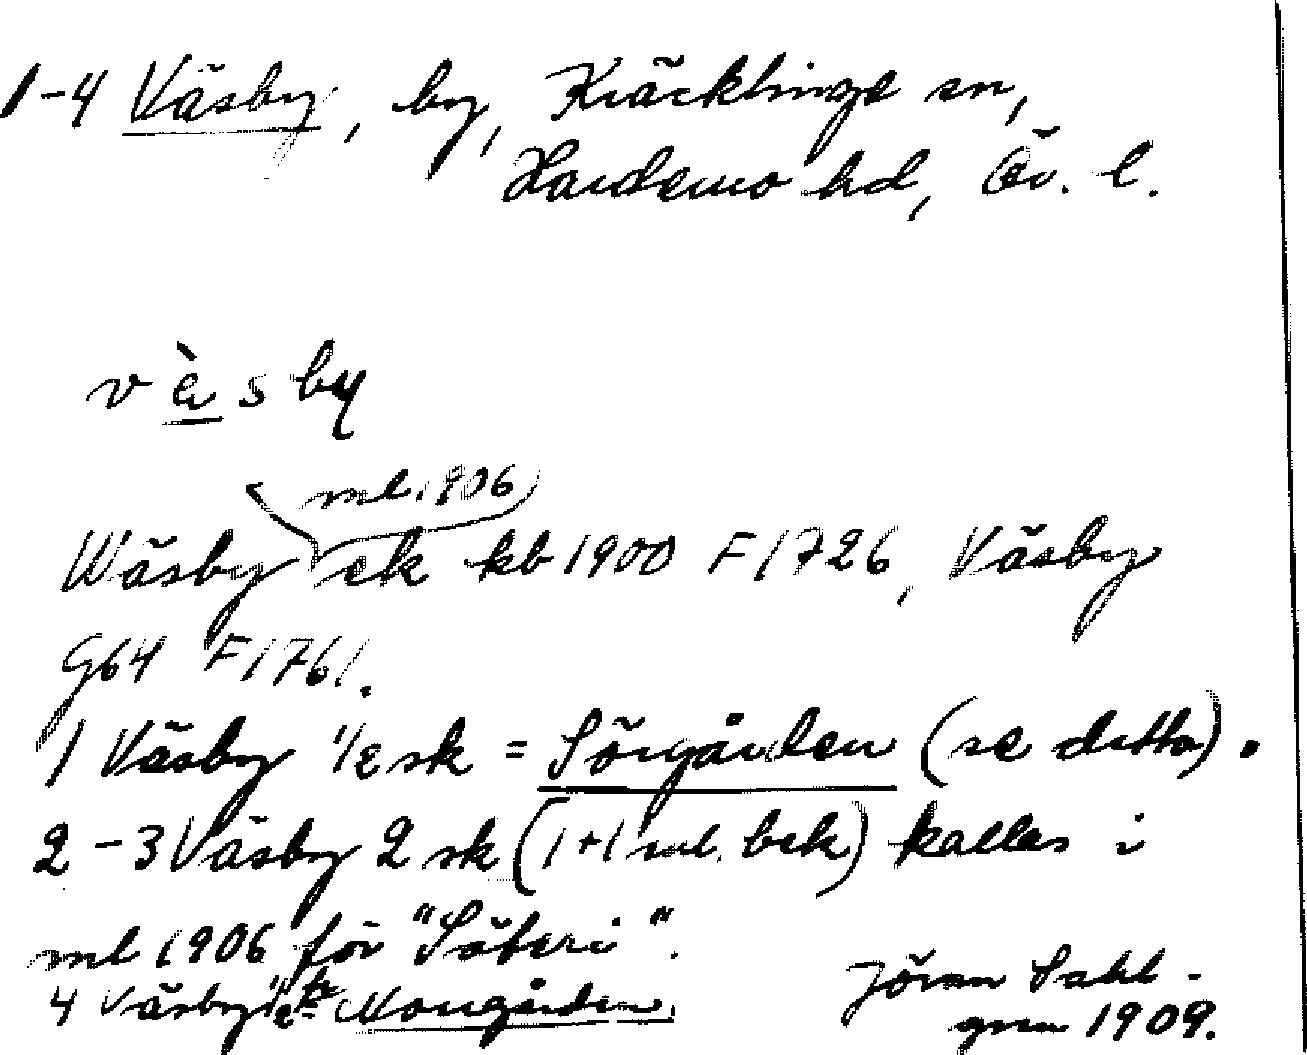 1-4 Väsby, by, Kräcklinge sn,
Hardemo hd, Ör. l.
v è s by
ml. 1906
Wäsby ek kb 1900 F 1726, Väsby
G64 F 1761.
1 Väsby 1/2 sk = Sörgården (se detta).
2-3 Väsby 2 sk (1+1 ml. bek) kallas i
ml 1906 för "Säteri".
4 Väsby 1/2 Norrgården.
Jöran Sahl-
gren 1909.